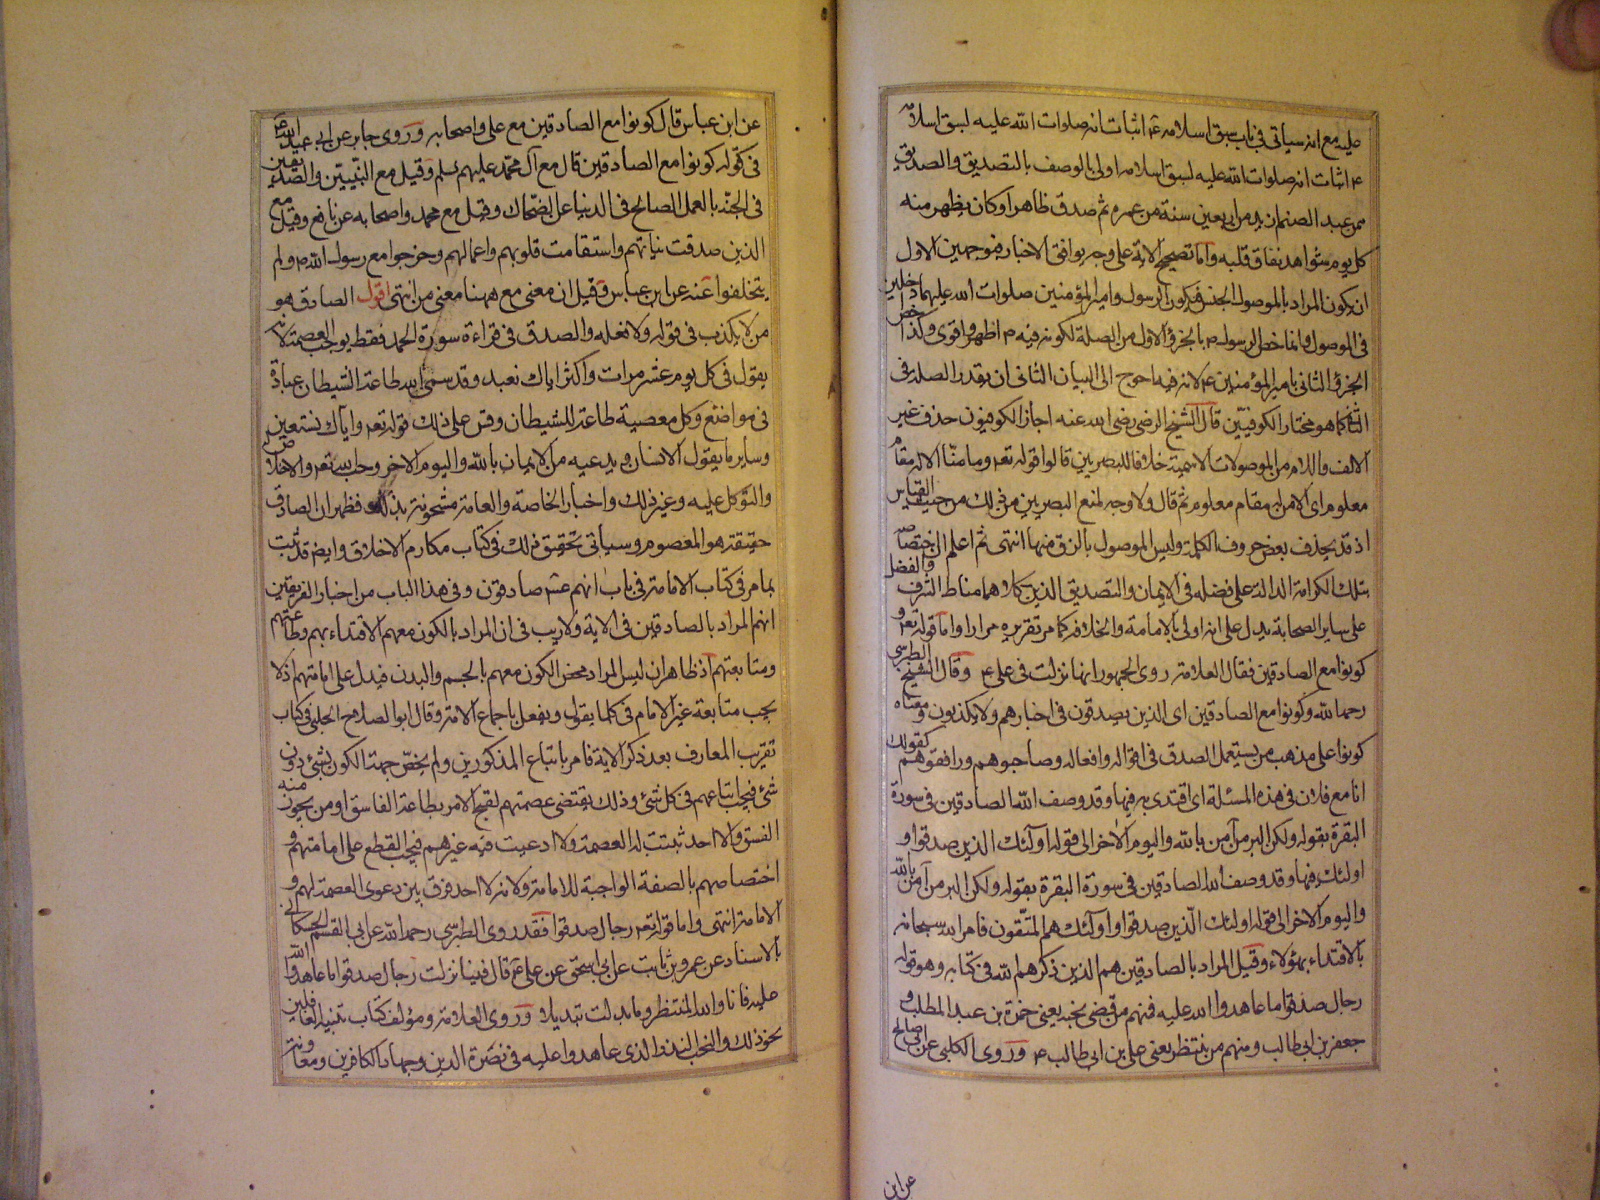 عليه مع انه سيأتي في باب سبق اسلامه ع اثبات انه صلوات الله عليه لسبق اسلامه
ع اثبات انه صلوات الله عليه لسبق اسلامه اولى بالوصف بالتصديق والصديق
ممن عبد الصنم ازيد من اربعين سنة من عمره ثم صدق ظاهرا وكان يظهر منه
كل يوم شواهد نفاق قلبه واما تصحيح الاية على وجه يوافق الاخبار فبوجهين الاول
ان يكون المراد بالموصول الجنس فيكون الرسول وامير المؤمنين صلوات الله عليهما داخلين
في الموصول وانما خص الرسول ص بالجزء الاول من الصلة لكونه فيه ص اظهر واقوى وكذا خص
الجزء الثاني بامير المؤمنين ع لانه فيه احوج الى البيان الثاني ان يقدر الصلة في
الثاني كما هو مختار الكوفيين قال الشيخ الرضي رضي الله عنه اجاز الكوفيون حذف غير
الالف واللام من الموصولات الاسمية خلافا للبصريين قالوا قوله تعه وما منا الا له مقام
معلوم اى الا من له مقام معلوم ثم قال ولا وجه لمنع البصريين من ذلك من حيث القياس
اذ قد يحذف بعض حروف الكلمة وليس الموصول بالزق منها انتهى ثم اعلم ان اختصاصه
بتلك الكرامة الدالة على فضله في الايمان والتصديق الذين كلاهما مناط الشرف والفضل
على ساير الصحابة يدل على انه اولى بالامامة والخلافة كما مر تقريره مرارا واما قوله تعه و
كونوا مع الصادقين فقال العلامة روى الجمهور انها نزلت في على ع وقال الشيخ الطبرسي
رحمه الله وكونوا مع الصادقين اى الذين يصدقون في اخبارهم ولا يكذبون ومعناه
كونوا على مذهب من يستعمل الصدق في اقواله وافعاله وصاحبوهم ورافقوهم كقولك
انا مع فلان في هذه المسئلة اى اقتدى به فيها وقد وصف الله الصادقين في سورة
البقرة بقوله ولكن البر من آمن بالله واليوم الاخر الى قوله اولئك الذين صدقوا و
اولئك فيها وقد وصف الله الصادقين في سورة البقرة بقوله ولكن البر من آمن بالله
واليوم الاخر الى قوله اولئك الذين صدقوا واولئك هم المتقون فامر الله سبحانه
بالاقتداء بهؤلاء وقيل المراد بالصادقين هم الذين ذكرهم الله في كتابه وهو قوله
رجال صدقوا ما عاهدوا الله عليه فمنهم من قضى نحبه يعنى حمزة بن عبد المطلب و
جعفر بن ابي طالب ومنهم من ينتظر يعنى على بن ابي طالب ع وروى الكلبي عن ابي صالح
عن ابن
عن ابن عباس قال كونوا مع الصادقين مع على واصحابه وروى جابر عن ابي عبد الله ع
في قوله كونوا مع الصادقين قال مع آل محمد عليهم السلم وقيل مع النبيين والصديقين
في الجنة بالعمل الصالح في الدنيا عن الضحاك وقيل مع محمد واصحابه عن نافع وقيل مع
الذين صدقت نياتهم واستقامت قلوبهم واعمالهم وخرجوا مع رسول الله ص ولم
يتخلفوا عنه عن ابن عباس وقيل ان معنى مع ههنا معنى من انتهى اقول الصادق هو
من لا يكذب في قوله ولا فعله والصدق في قراءة سورة الحمد فقط يوجب العصمة لانه
يقول في كل يوم عشر مرات واكثر اياك نعبد وقد سمى الله طاعة الشيطان عبادة
في مواضع وكل معصية طاعة للشيطان وقس على ذلك قوله تعه واياك نستعين
وساير ما يقول الانسان ويدعيه من الايمان بالله واليوم الاخر وحب الله تعه والاخلاص له
والتوكل عليه وغير ذلك واخبار الخاصة والعامة مشحونة بذلك فظهر ان الصادق
حقيقة هو المعصوم وسيأتي تحقيق ذلك في كتاب مكارم الاخلاق وايضا قد ثبت
بما مر في كتاب الامامة في باب انهم ع صادقون وفي هذا الباب من اخبار الفريقين
انهم المراد بالصادقين في الاية ولا ريب في ان المراد بالكون معهم الاقتداء بهم وطاعتهم
ومتابعتهم اذ ظاهر ان ليس المراد محض الكون معهم بالجسم والبدن فيدل على امامتهم اذ لا
يجب متابعة غير الامام في كلما يقول ويفعل باجماع الامة وقال ابو الصلاح الحلبي في كتاب
تقريب المعارف بعد ذكر الاية فامر باتباع المذكورين ولم يخص جهة الكون بشئ دون
شئ فيجب اتباعهم في كل شئ وذلك يقتضى عصمتهم لقبح الامر بطاعة الفاسق او من يجوز منه
الفسق ولا احد ثبتت له العصمة ولا ادعيت فيه غيرهم فيجب القطع على امامتهم و
اختصاصهم بالصفة الواجبة للامامة ولانه لا احد فرق بين دعوى العصمة لهم و
الامامة انتهى واما قوله تعه رجال صدقوا فقد روى الطبرسي رحمه الله عن ابي القسم الحسكاني
بالاسناد عن عمرو بن ثابت عن ابي اسحق عن على ع قال فينا نزلت رجال صدقوا ما عاهدوا الله
عليه فانا والله المنتظر وما بدلت تبديلا وروى العلامة ومؤلف كتاب تنبيه الغافلين
نحو ذلك والنحب النذر الذى عاهدوا عليه في نصرة الدين وجهاد الكافرين ومعاونة